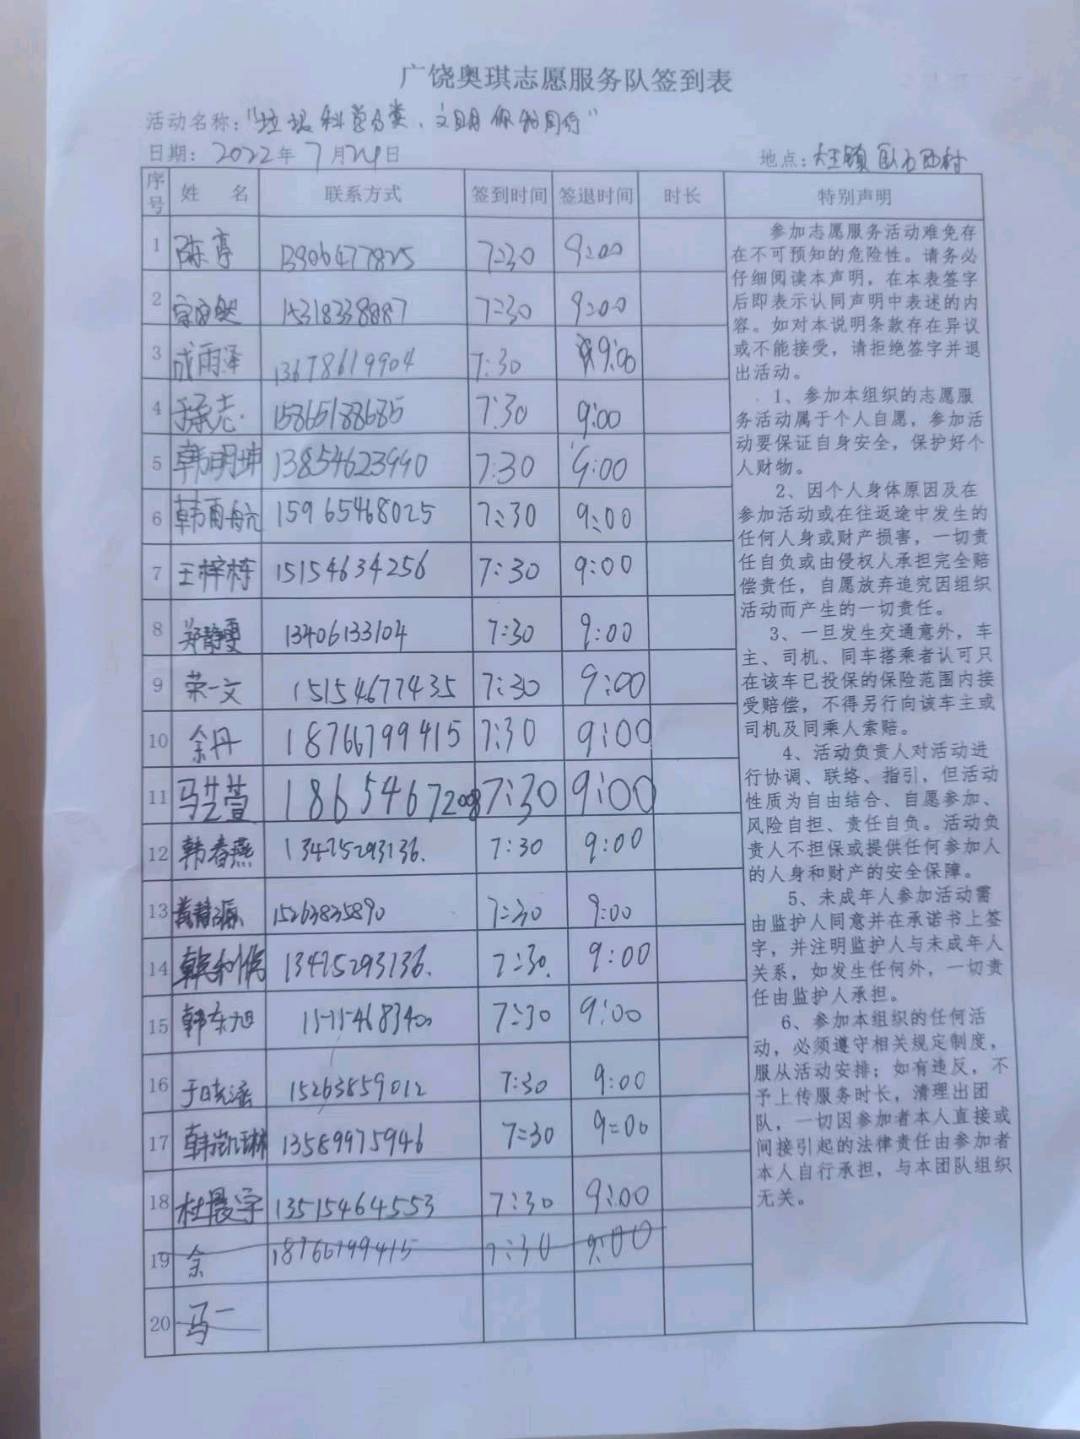 广饶奥琪志愿服务队签到表
活动名称："垃圾科学分类、文明你我同行"
日期：2022年7月24日 地点：大王镇
序号 姓 名 联系方式 签到时间 签退时间 时长 特别声明
1 陈亭 13906477825 7:30 9:00
2 15318338887 7:30 9:00
3 成雨泽 13678619904 7:30 9:00
4 于承志 15865188685 7:30 9:00
5 韩明坤 13854623990 7:30 9:00
6 韩雨航 15965468025 7:30 9:00
7 王梓栋 15154634256 7:30 9:00
8 郑静雯 13406133104 7:30 9:00
9 荣一文 15154677435 7:30 9:00
10 余丹 18766799415 7:30 9:00
11 马艺萱 18654672008 7:30 9:00
12 韩春燕 13475293136. 7:30 9:00
13 15263835890 7:30 9:00
14 13475293136. 7:30. 9:00
15 韩东旭 7:30 9:00
16 于晓涵 15263859012 7:30 9:00
17 韩凯琳 13589975946 7:30 9:00
18 杜晨宇 13515464553 7:30 9:00
19 余 18766799415 7:30 9:00
20 马一
参加志愿服务活动难免存
在不可预知的危险性。请务必
仔细阅读本声明，在本表签字
后即表示认同声明中表述的内
容。如对本说明条款存在异议
或不能接受，请拒绝签字并退
出活动。
1、参加本组织的志愿服
务活动属于个人自愿，参加活
动要保证自身安全，保护好个
人财物。
2、因个人身体原因及在
参加活动或在往返途中发生的
任何人身或财产损害，一切责
任自负或由侵权人承担完全赔
偿责任，自愿放弃追究因组织
活动而产生的一切责任。
3、一旦发生交通意外，车
主、司机、同车搭乘者认可只
在该车已投保的保险范围内接
受赔偿，不得另行向该车主或
司机及同乘人索赔。
4、活动负责人对活动进
行协调、联络、指引，但活动
性质为自由结合、自愿参加、
风险自担、责任自负。活动负
责人不担保或提供任何参加人
的人身和财产的安全保障。
5、未成年人参加活动需
由监护人同意并在承诺书上签
字，并注明监护人与未成年人
关系，如发生任何外，一切责
任由监护人承担。
6、参加本组织的任何活
动，必须遵守相关规定制度，
服从活动安排；如有违反，不
予上传服务时长，清理出团
队，一切因参加者本人直接或
间接引起的法律责任由参加者
本人自行承担，与本团队组织
无关。